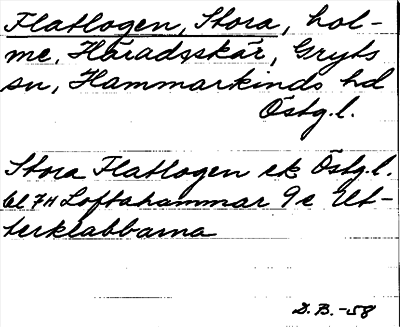 Flatlogen, Stora, hol-
me, Häradsskär, Gryts
sn, Hammarkinds hd
Östg.l.
Stora Flatlogen ek Östg.l.
bl 7H Loftahammar 9e Ut-
terklabbarna
D.B.-58